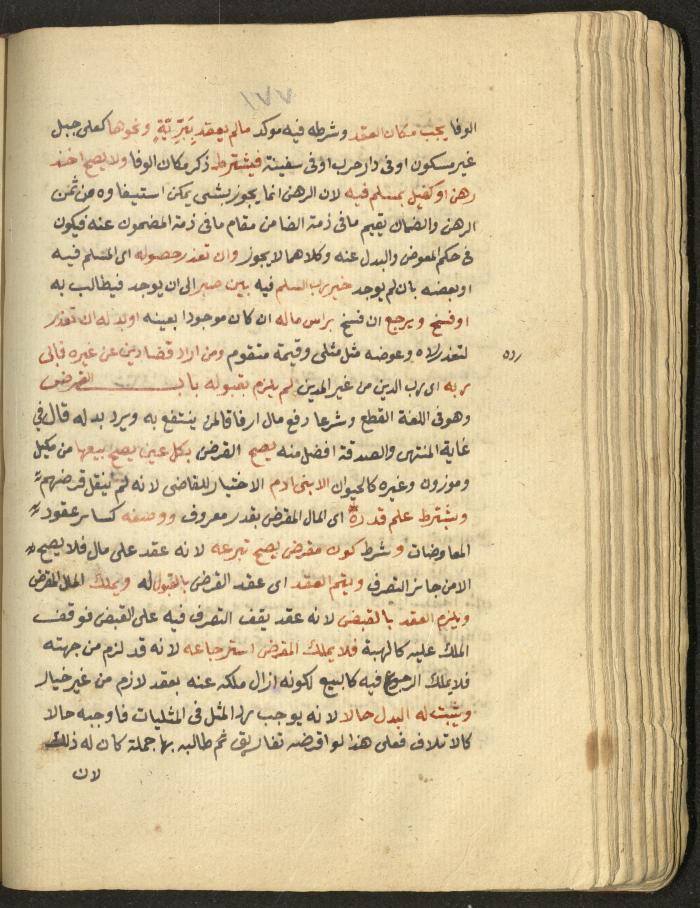 ١٧٧
الوفا يجب مكان العقد وشرطه فيه موكد مالم يعقد ببَرِّيّةٍ ونحوها كعلى جبل
غير مسكون او فى دار حرب او فى سفينة فيشترط ذكر مكان الوفا ولا يصح اخذ
رهن او كفيل بمسلم فيه لان الرهن انما يجوز بشى يمكن استيفاوه من ثمن
الرهن والضمان يقيم مافى ذمة الضامن مقام مافى ذمة المضمون عنه فيكون
فى حكم المعوض والبدل عنه وكلاهما لا يجوز وان تعذر حصوله اى المسلم فيه
او بعضه بان لم يوجد خير رب السلم فيه بين صبر الى ان يوجد فيطالب به
او فسخ ويرجع ان فسخ براس ماله ان كان موجودا بعينه او بدله ان تعذر
لتعذر رده وعوضه مثل مثلى وقيمة متقوم ومن اراد قضا دين عن غيره فابى
رده
ربه اى رب الدين من غير المدين لم يلزم بقبوله باب القرض
وهو فى اللغة القطع وشرعا دفع مال ارفاقا لمن ينتفع به ويرد بدله قال فى
غاية المنتهى والصدقة افضل منه يصح القرض بكل عين يصح بيعها من مكيل
وموزون وغيره كالحيوان الا بنى ادم الاختيار للقاضى لانه لم ينقل قرضهم
ويشترط علم قدره اى المال المقرض بقدر معروف ووصفه كسائر عقود
المعاوضات وشرط كون مقرض يصح تبرعه لانه عقد على مال فلا يصح
الا من جائز التصرف ويتم العقد اى عقد القرض بالقبول له ويملك المال المقرض
ويلزم العقد بالقبض لانه عقد يقف التصرف فيه على القبض فوقف
الملك عليه كالهبة فلا يملك المقرض استرجاعه لانه قد لزم من جهته
فلا يملك الرجوع فيه كالبيع لكونه ازال ملكه عنه بعقد لازم من غير خيار
ويثبت له البدل حالا لانه يوجب رد المثل فى المثليات فاوجبه حالا
كالاتلاف فعلى هذا لو اقرضه تفاريق ثم طالبه بها جملة كان له ذلك
لان